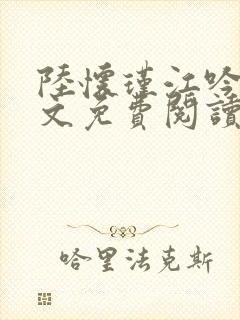 陸懷瑾江吟
文免費閱讀
哈里法克斯